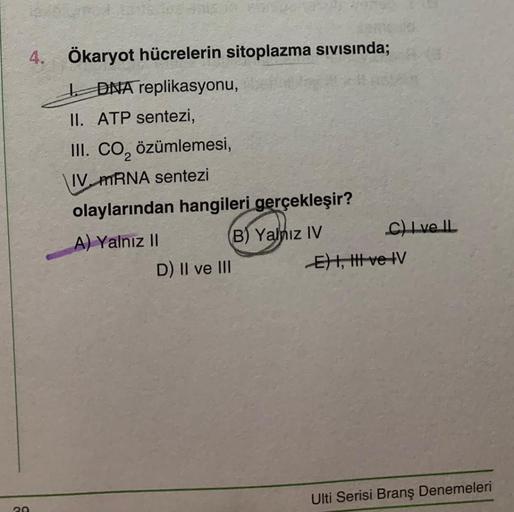 4. Ökaryot hücrelerin sitoplazma sıvısında;
I. DNA replikasyonu,
II. ATP sentezi,
III. CO₂ özümlemesi,
IV. mRNA sentezi
olaylarından hangileri gerçekleşir?
A) Yalnız II B) Yalnız IV C) I ve II
D) II ve III E) I, III ve IV
Ulti Serisi Branş Denemeleri